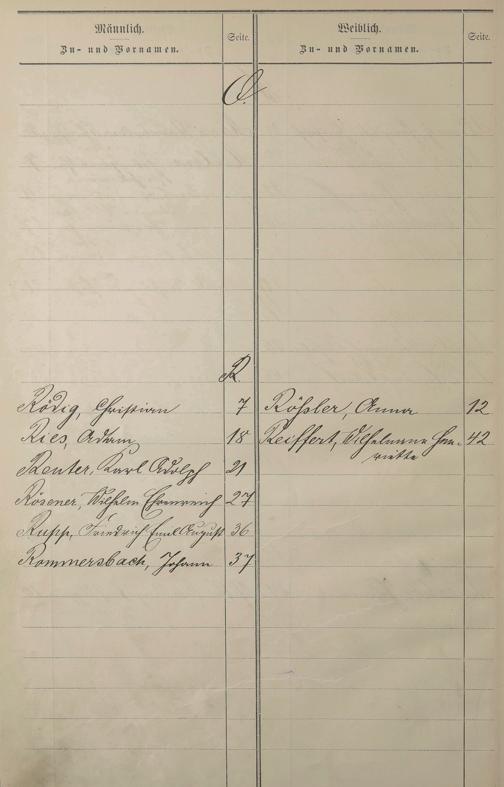 Männlich.
Zu- und Vornamen.
Seite.
Weiblich.
Zu- und Vornamen.
Seite.
Q.
R.
Rödig, Christian 7
Rößler, Anna 12
Ries, Adam 18
Reiffert, Wilhelmine Hen- 42
riette
Reuter, Karl Adolph 21
Rösener, Wilhelm Ehrenreich 27
Rupp, Friedrich Emil August 36
Rommersbach, Johann 37